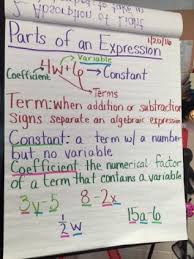 Parts of an Expression
1/20/16
Variable
4w+6 → Constant
Coefficient
Terms
Term: when addition or subtraction
signs separate an algebraic expression
Constant: a term w/ a number
but no variable
Coefficient: the numerical factor
of a term that contains a variable
3y-5 8-2x
1/2 w 15a-6